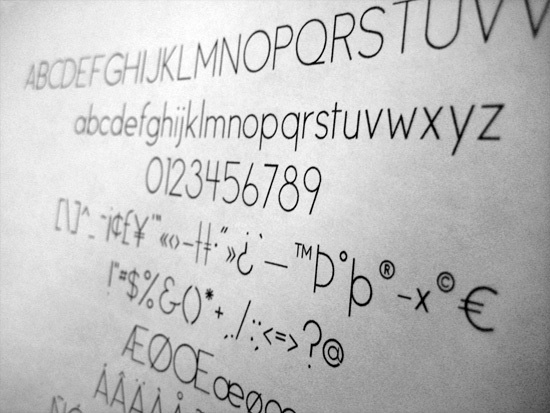 ABCDEFGHIJKLMNOPQRSTUVV
abcdefghijklmnopqrstuvwxyz
0123456789
[\]^_¨¡¢£¥'"«‹›–†‡·"»¿ˆ`—™Þ°þ®-×©€
!"#$%&()*+,./:;<=>?@
ÆØŒæøœ
ÁÂÃÄÀÅ
ÑÓ